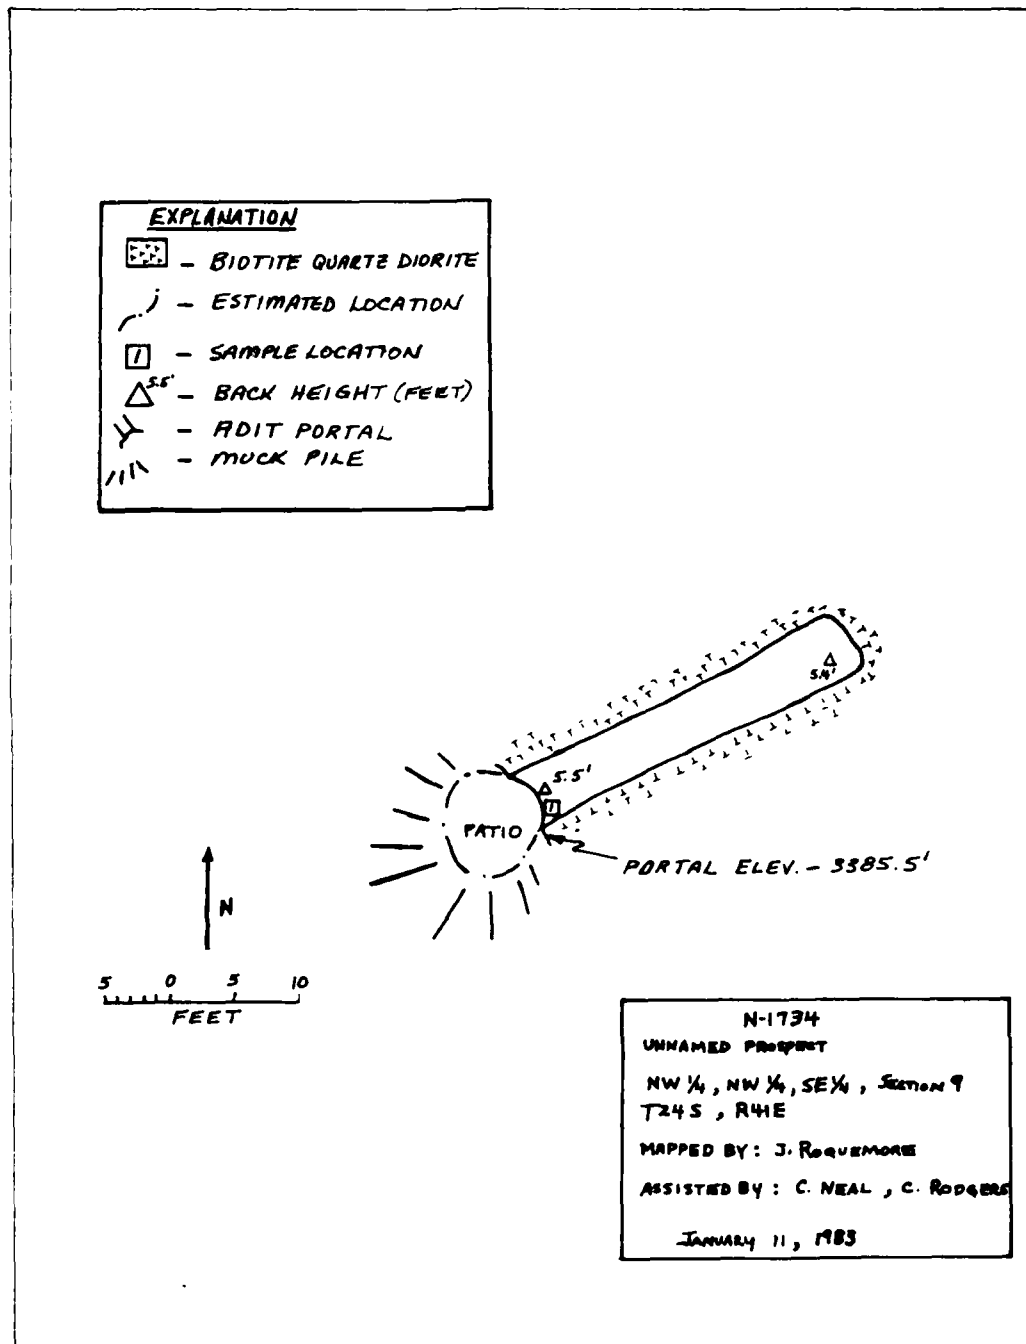 EXPLANATION
- BIOTITE QUARTZ DIORITE
- ESTIMATED LOCATION
1 - SAMPLE LOCATION
5.5' - BACK HEIGHT (FEET)
- ADIT PORTAL
- MUCK PILE
5.4'
5.5'
1
PATIO
PORTAL ELEV. - 3385.5'
N
5 0 5 10
FEET
N-1734
UNNAMED PROSPECT
NW 1/4, NW 1/4, SE 1/4, SECTION 9
T24S, R41E
MAPPED BY: J. ROQUEMORE
ASSISTED BY: C. NEAL, C. RODGERS
JANUARY 11, 1983